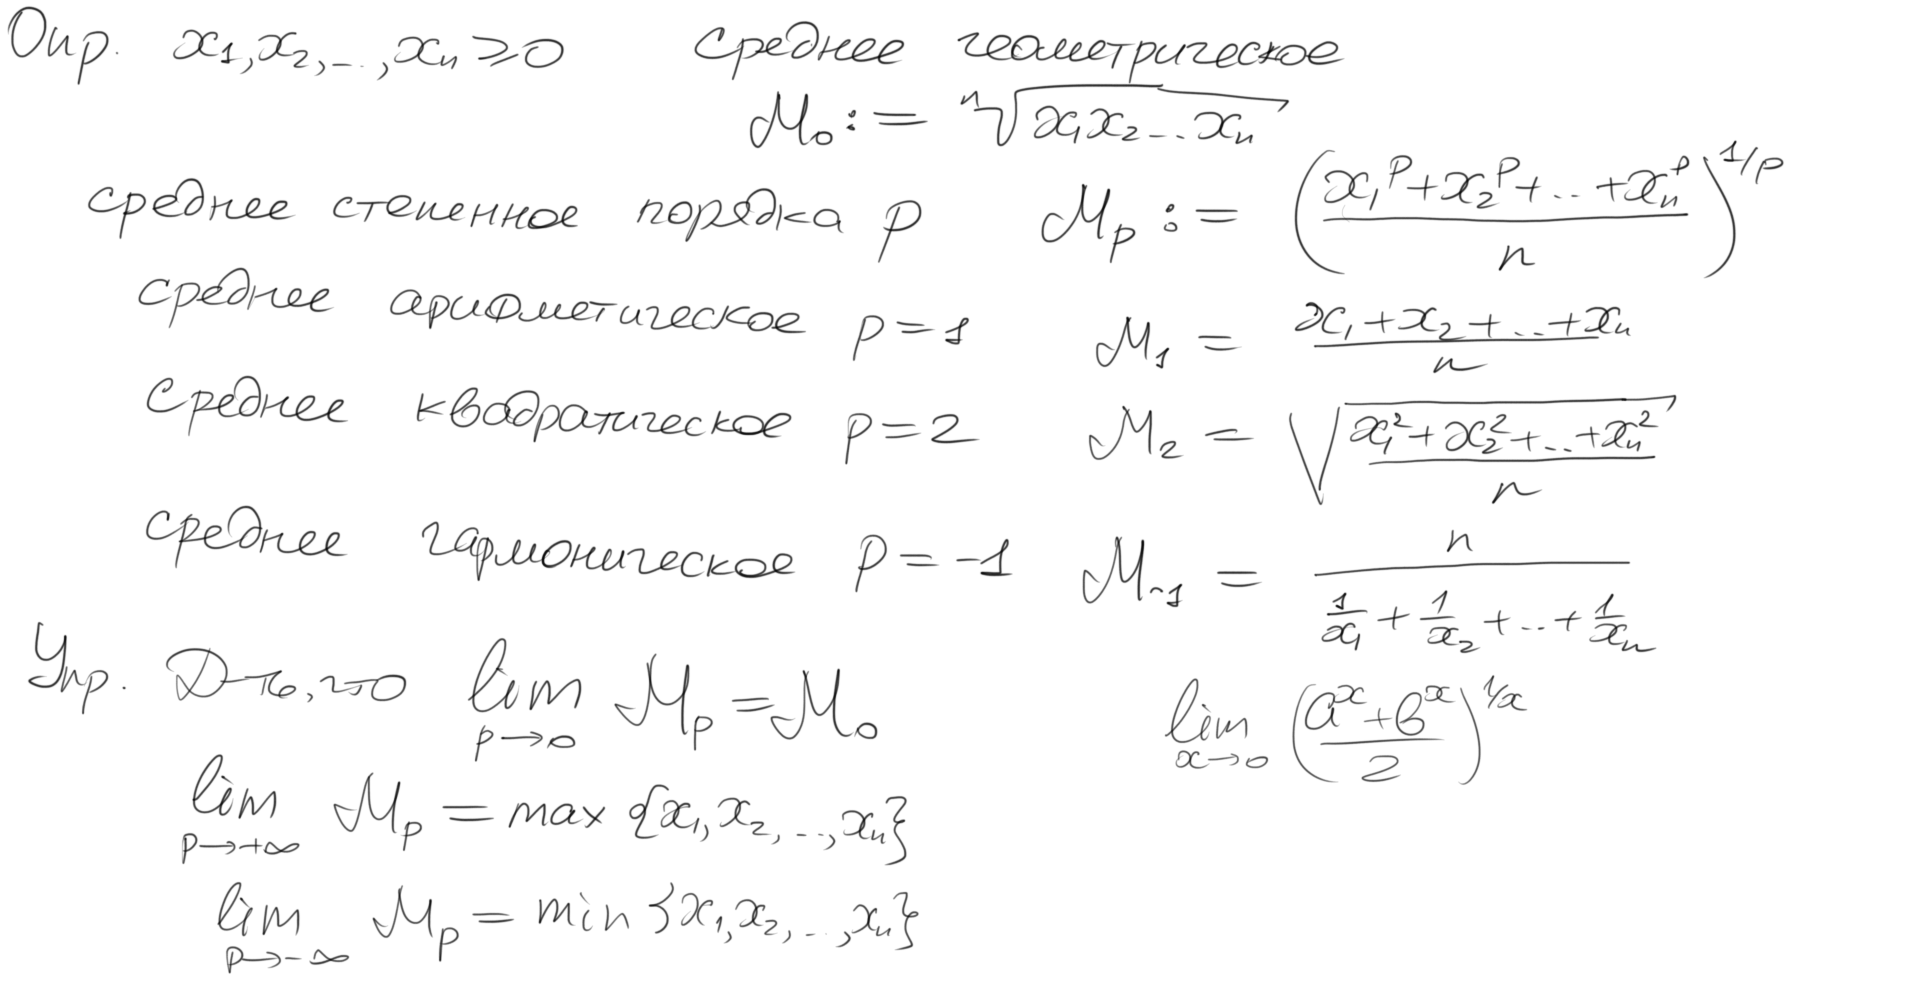 Опр. x₁, x₂, ..., xₙ ⩾ 0 среднее геометрическое
M₀ := ⁿ√(x₁x₂...xₙ)
среднее степенное порядка p Mₚ := ((x₁ᵖ + x₂ᵖ + ... + xₙᵖ)/n)^(1/p)
среднее арифметическое p = 1 M₁ = (x₁ + x₂ + ... + xₙ)/n
Среднее квадратическое p = 2 M₂ = √((x₁² + x₂² + ... + xₙ²)/n)
среднее гармоническое p = -1 M₋₁ = n/(1/x₁ + 1/x₂ + ... + 1/xₙ)
Упр. Д-ть, что lim_{p→0} Mₚ = M₀ lim_{x→0} ((aˣ + bˣ)/2)^(1/x)
lim_{p→+∞} Mₚ = max {x₁, x₂, ..., xₙ}
lim_{p→-∞} Mₚ = min {x₁, x₂, ..., xₙ}